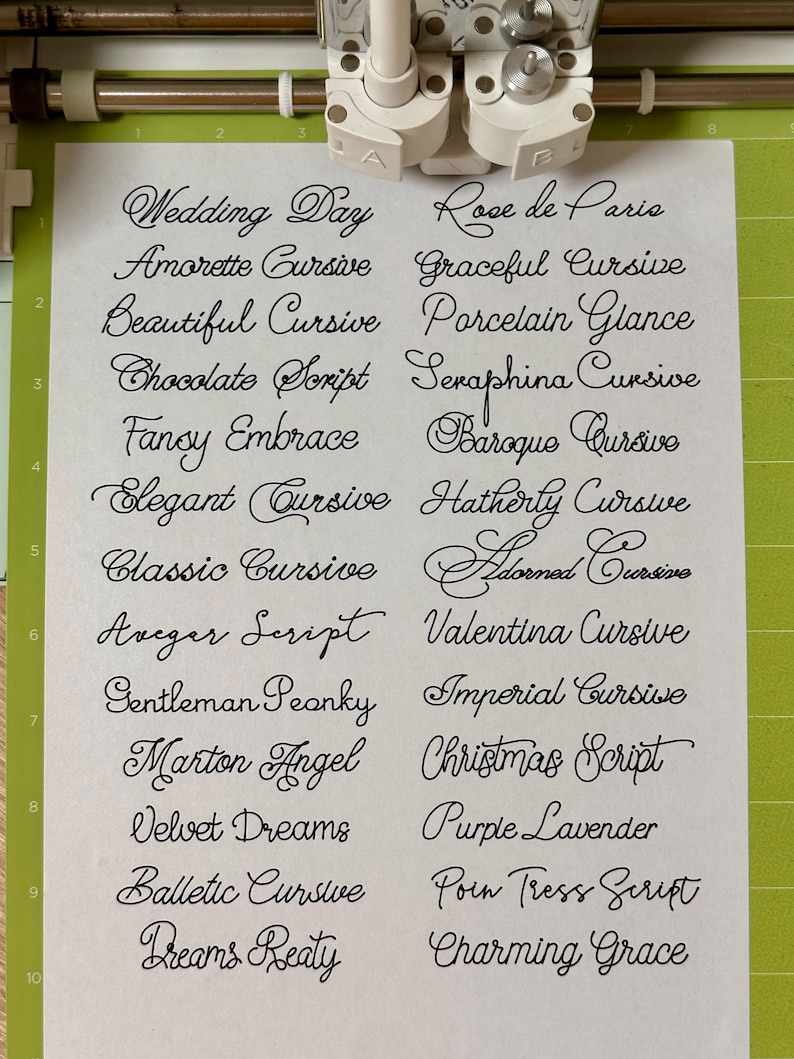 A B
1 2 3 7 8 9
Wedding Day Rose de Paris
1
Amorette Cursive Graceful Cursive
2
Beautiful Cursive Porcelain Glance
3
Chocolate Script Seraphina Cursive
Fansy Embrace Baroque Cursive
4
Elegant Cursive Hatherly Cursive
5
Classic Cursive Adorned Cursive
6
Avegar Script Valentina Cursive
Gentleman Peonky Imperial Cursive
7
Marton Angel Christmas Script
8
Velvet Dreams Purple Lavender
9
Balletic Cursive Poin Tress Script
Dreams Reaty Charming Grace
10